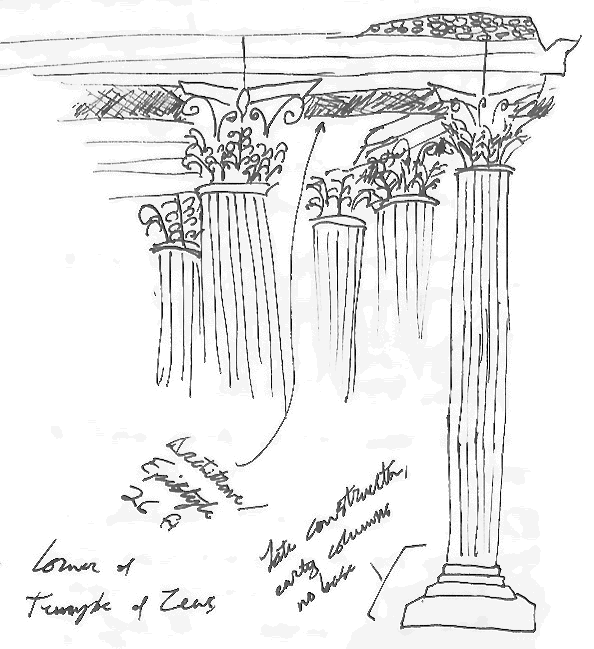 Architrave/
Epistyle
26 ft
late construction,
early columns
no base
Corner of
Temple of Zeus